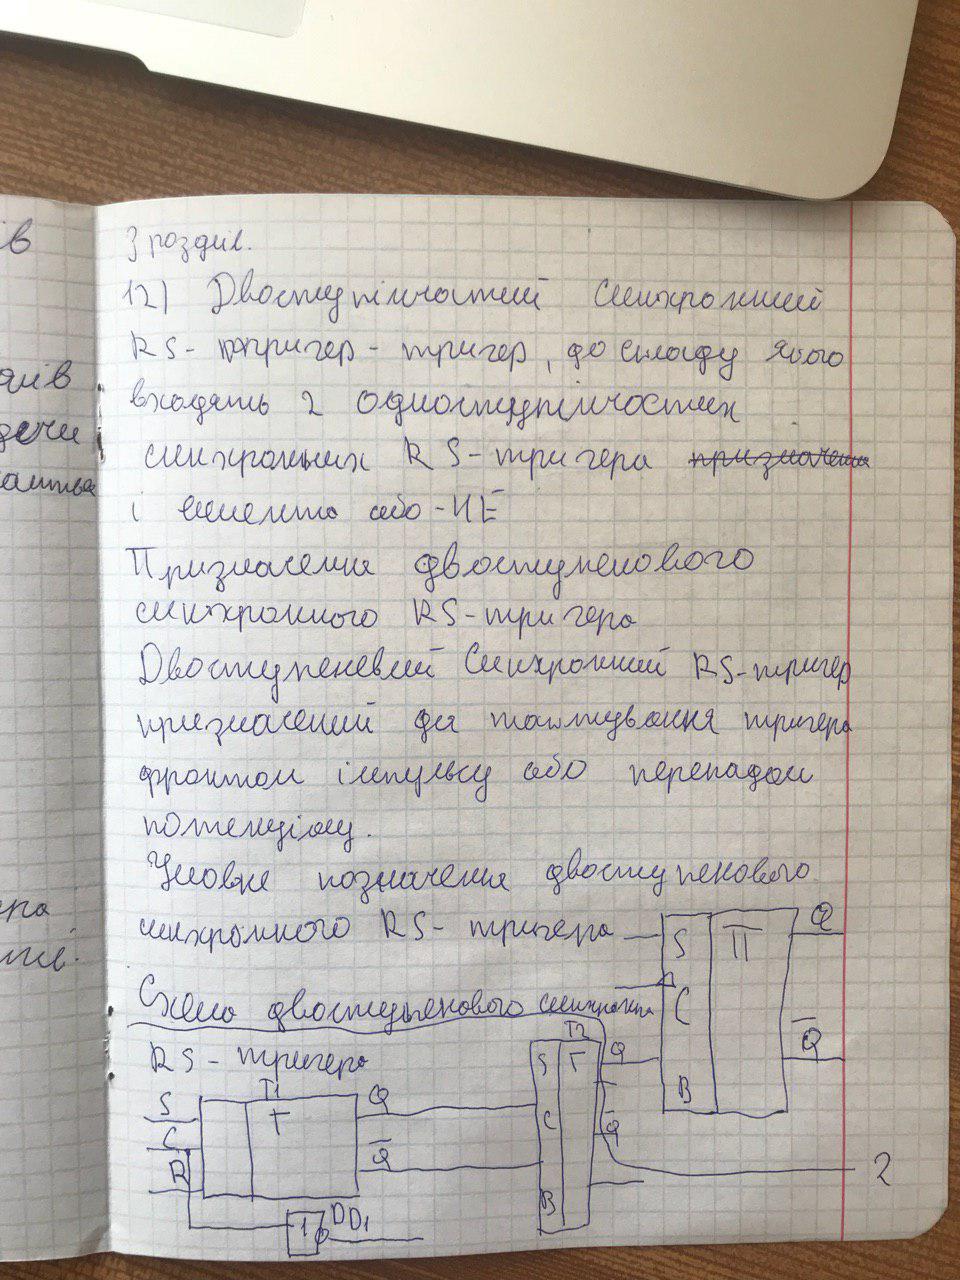 ів
ців
дечи
ера
3 розділ.
12) Двоступінчастий синхронний
RS-тригер - тригер, до складу якого
входять 2 одноступінчастих
синхронних RS-тригера призначення
і елемента або-НЕ
Призначення двоступенового
синхронного RS-тригера
Двоступеневий синхронний RS-тригер
призначений для тактування тригера
фронтом імпульсу або перепадом
потенціалу.
Умовне позначення двоступенового
синхронного RS-тригера
S TT Q
C
B Q̅
Схема двоступенового синхронного
RS-тригера
T1 T2
S T Q S T Q
C C
R Q̅ B Q̅
1 DD1
2